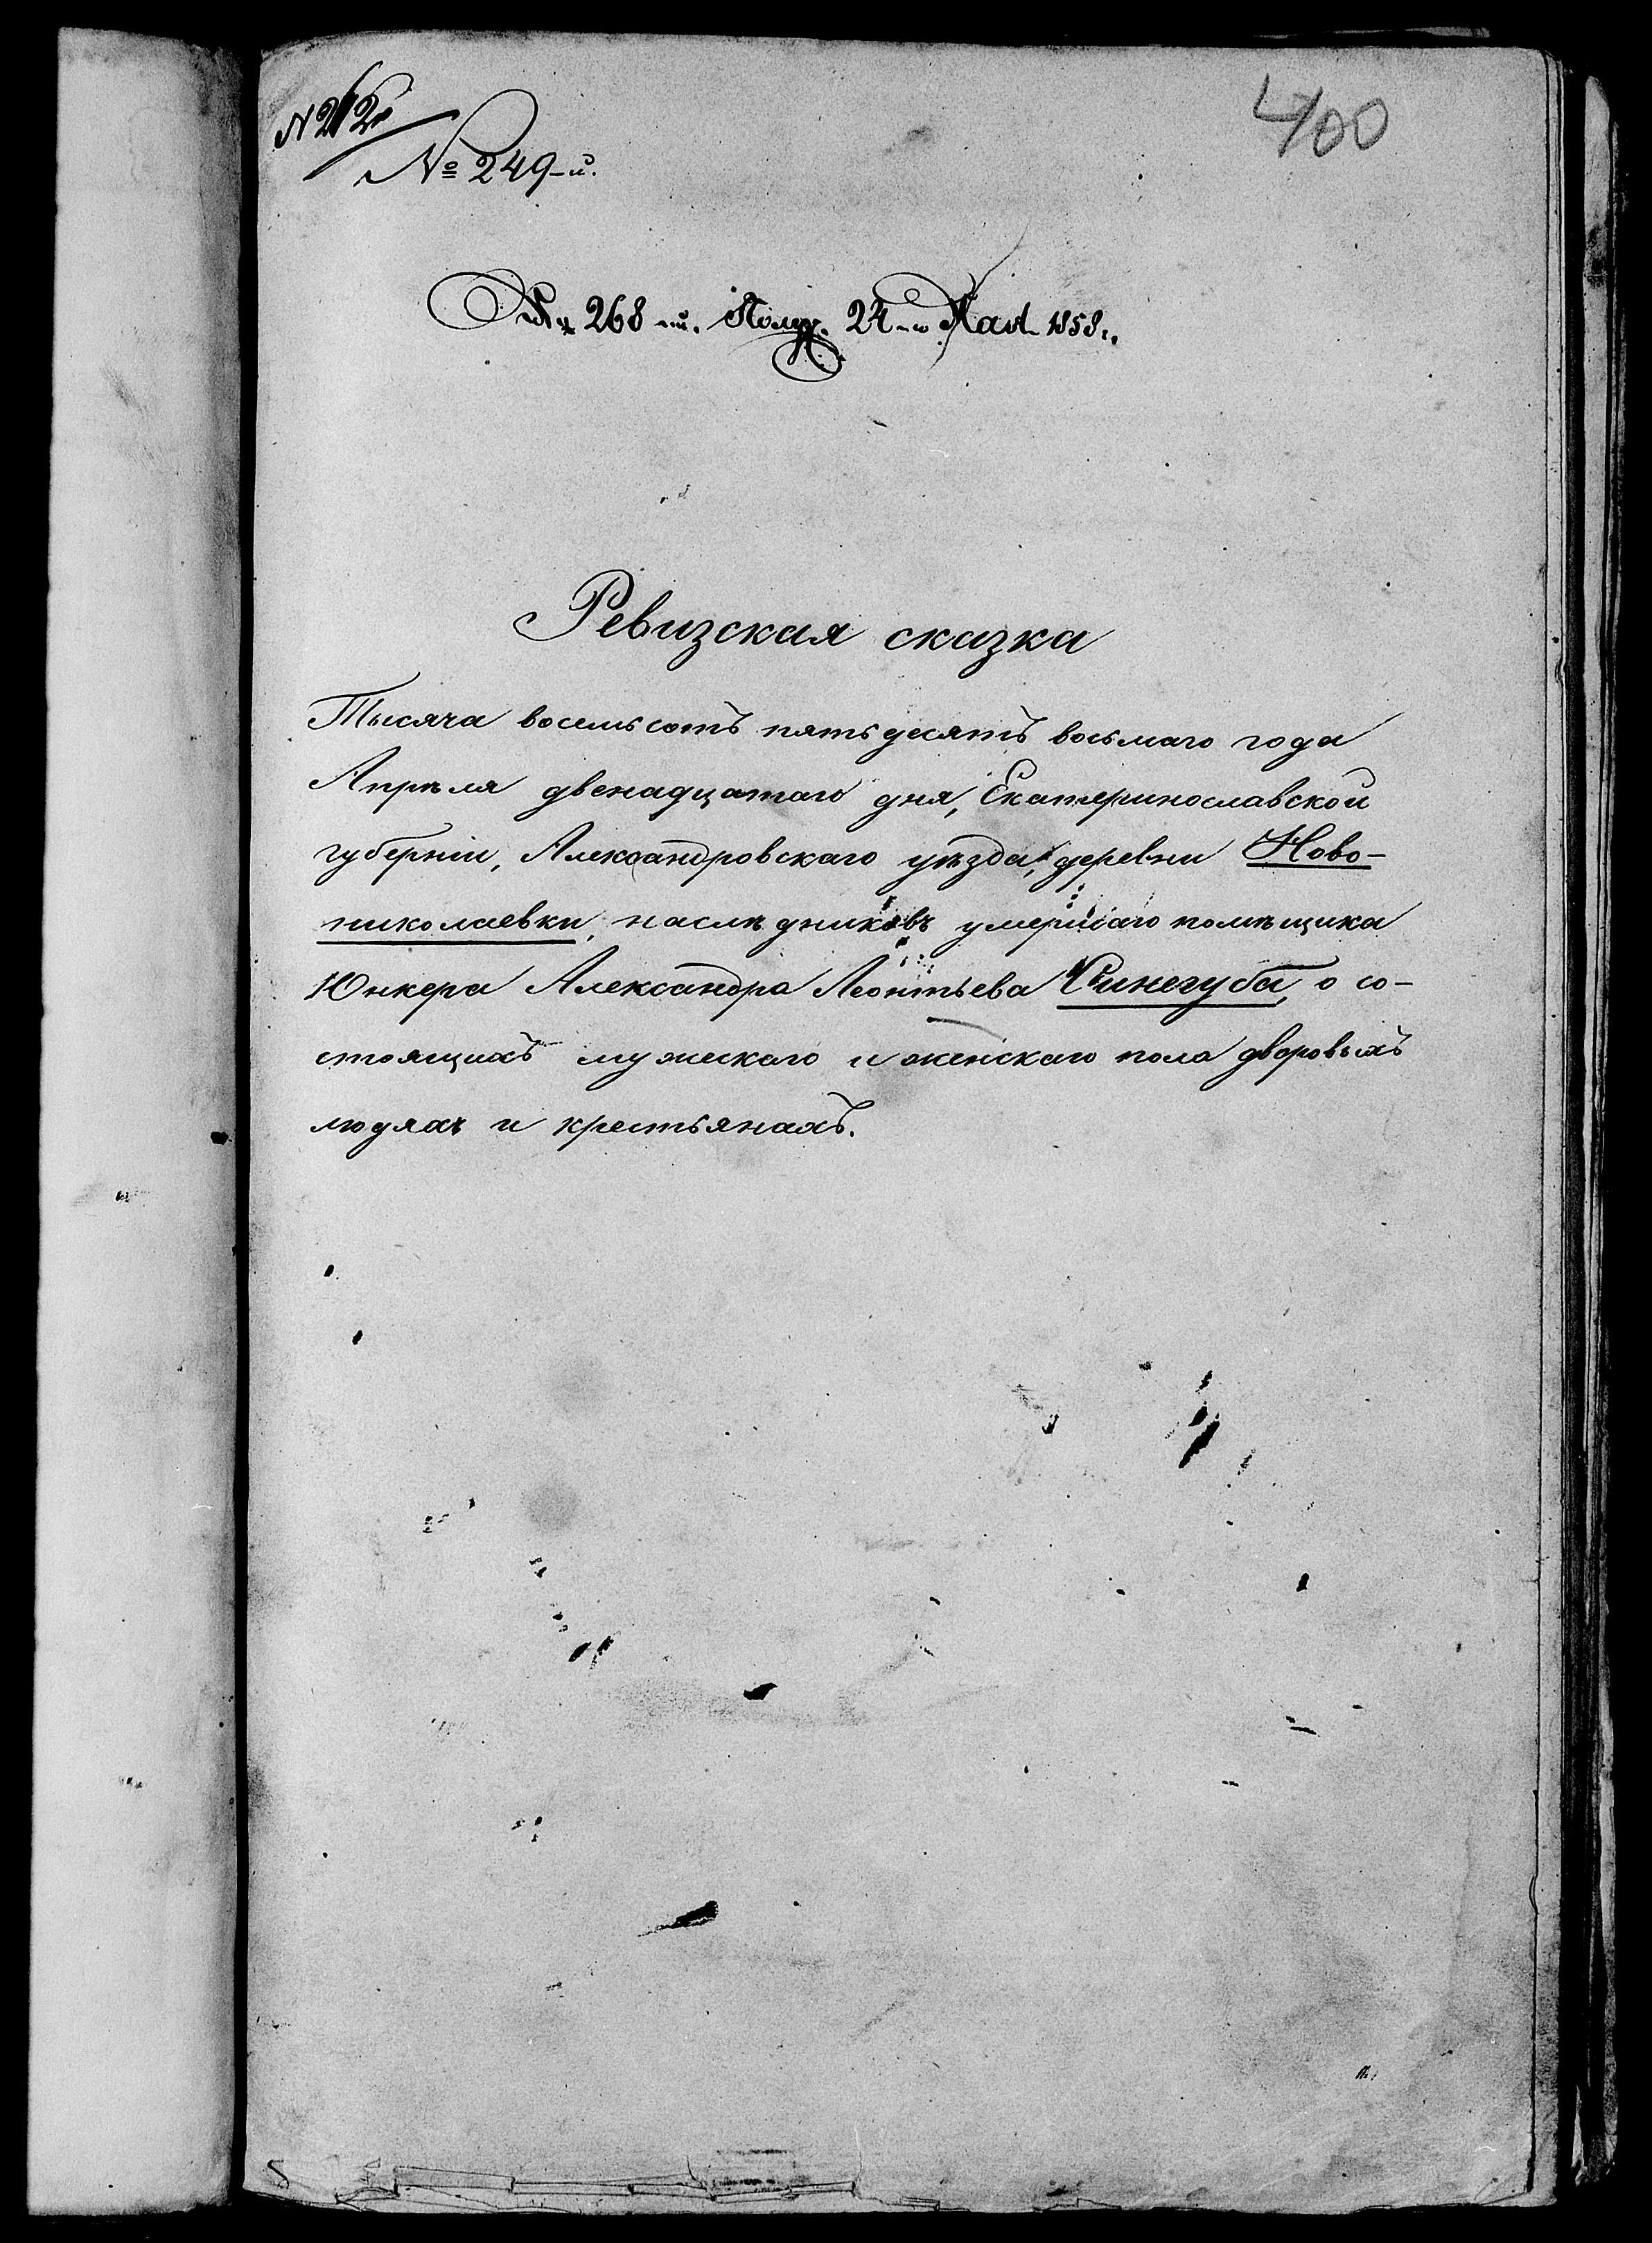 400
№ 249-й.
№ 268-й. Получ. 24-го Мая 1858 г.
Ревизская сказка
Тысяча восемьсотъ пятьдесятъ восьмаго года
Апрѣля двенадцатаго дня, Екатеринославской
губерніи, Александровскаго уѣзда, деревни Ново-
николаевки, наслѣдниковъ умершаго помѣщика
Юнкера Александра Леонтьева Синегуба, о со-
стоящихъ мужескаго и женскаго пола дворовыхъ
людяхъ и крестьянахъ.